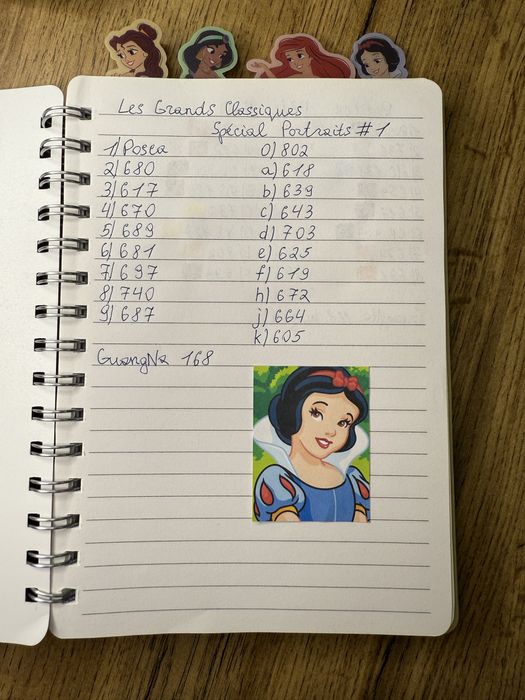 Les Grands Classiques
Spécial Portraits #1
1) Posca 0) 802
2) 680 a) 618
3) 617 b) 639
4) 670 c) 643
5) 689 d) 703
6) 681 e) 625
7) 697 f) 619
8) 740 h) 672
9) 687 j) 664
k) 605
GuangNa 168